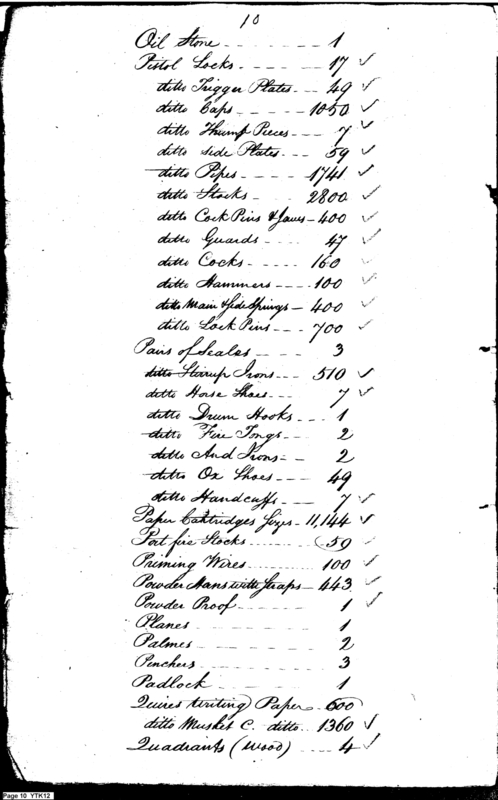 10
Oil Stone 1
Pistol Locks 17 ✓
ditto Trigger Plates 49 ✓
ditto Caps 1050 ✓
ditto Thump Pieces 7 ✓
ditto side Plates 59 ✓
ditto Pipes 1741 ✓
ditto Stocks 2800 ✓
ditto Cock Pins & Jaws 400 ✓
ditto Guards 47 ✓
ditto Cocks 160 ✓
ditto Hammers 100 ✓
ditto Main & side Springs 400 ✓
ditto Lock Pins 700 ✓
Pairs of Scales 3
ditto Stirrup Irons 510 ✓
ditto Horse Shoes 7 ✓
ditto Drum Hooks 1
ditto Fire Tongs 2
ditto And Irons 2
ditto Ox Shoes 49
ditto Handcuffs 7 ✓
Paper Cartridges 11,144 ✓
Port fire Stocks 59 ✓
Priming Wires 100 ✓
Powder with Straps 443 ✓
Powder Proof 1 ✓
Planes 1
Palmes 2
Pinchers 3
Padlock 1
Quires Writing Paper 600
ditto Musket C. ditto 1360 ✓
Quadrants (wood) 4 ✓
Page 10 YTK12